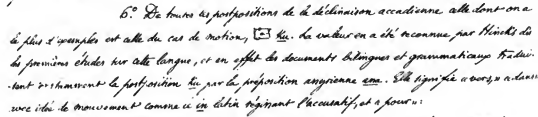 6.° De toutes les postpositions de la déclinaison accadienne celle dont on a
le plus d'exemples est celle du cas de motion, ku. La valeur en a été reconnue par Hincks dès
les premières études sur cette langue, et en effet les documents bilingues et grammaticaux traduisent
constamment la postposition ku par la préposition assyrienne ana. Elle signifie « vers, » « dans »
avec idée de mouvement comme le in latin régissant l'accusatif, et « pour » :